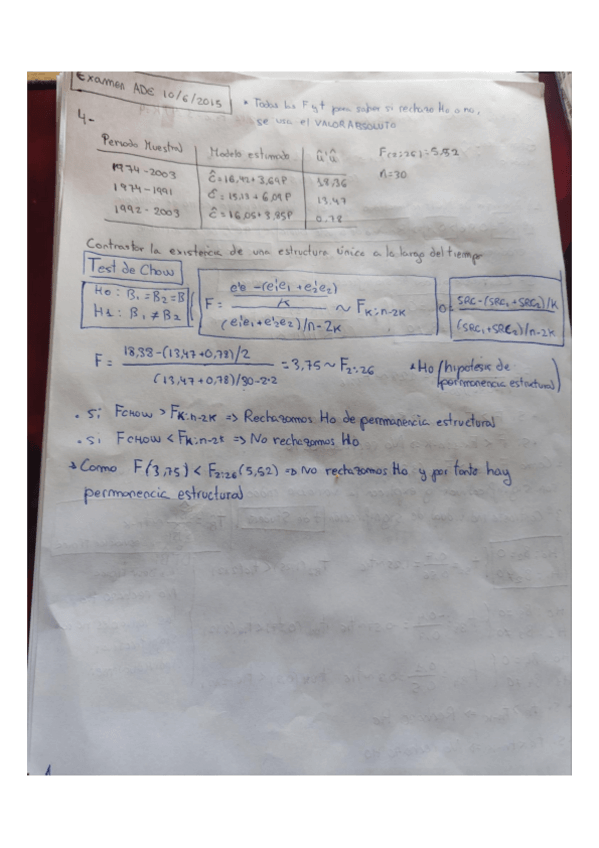 Examen ADE 10/6/2015
* Todas las F y t para saber si rechazo Ho o no,
se usa el VALOR ABSOLUTO
4-
Periodo Muestral Modelo estimado û'û F(2;26)=5,52
1974-2003 Ĉ=16,42+3,69P 18,36 n=30
1974-1991 Ĉ=15,13+6,09P 13,47
1992-2003 Ĉ=16,05+3,85P 0,78
Contrastar la existencia de una estructura única a lo largo del tiempo
Test de Chow
Ho: B1=B2=B
H1: B1≠B2
F = e'e-(e'1e1+e'2e2)/K / (e'1e1+e'2e2)/n-2K ~ FK;n-2K o = SRC-(SRC1+SRC2)/K / (SRC1+SRC2)/n-2K
F = 18,38-(13,47+0,78)/2 / (13,47+0,78)/30-2·2 = 3,75 ~ F2;26 * Ho (hipótesis de permanencia estructural)
. Si FCHOW > FK;n-2K => Rechazamos Ho de permanencia estructural
. Si FCHOW < FK;n-2K => No rechazamos Ho
Como F(3,75) < F2;26 (5,52) => No rechazamos Ho y por tanto hay
permanencia estructural